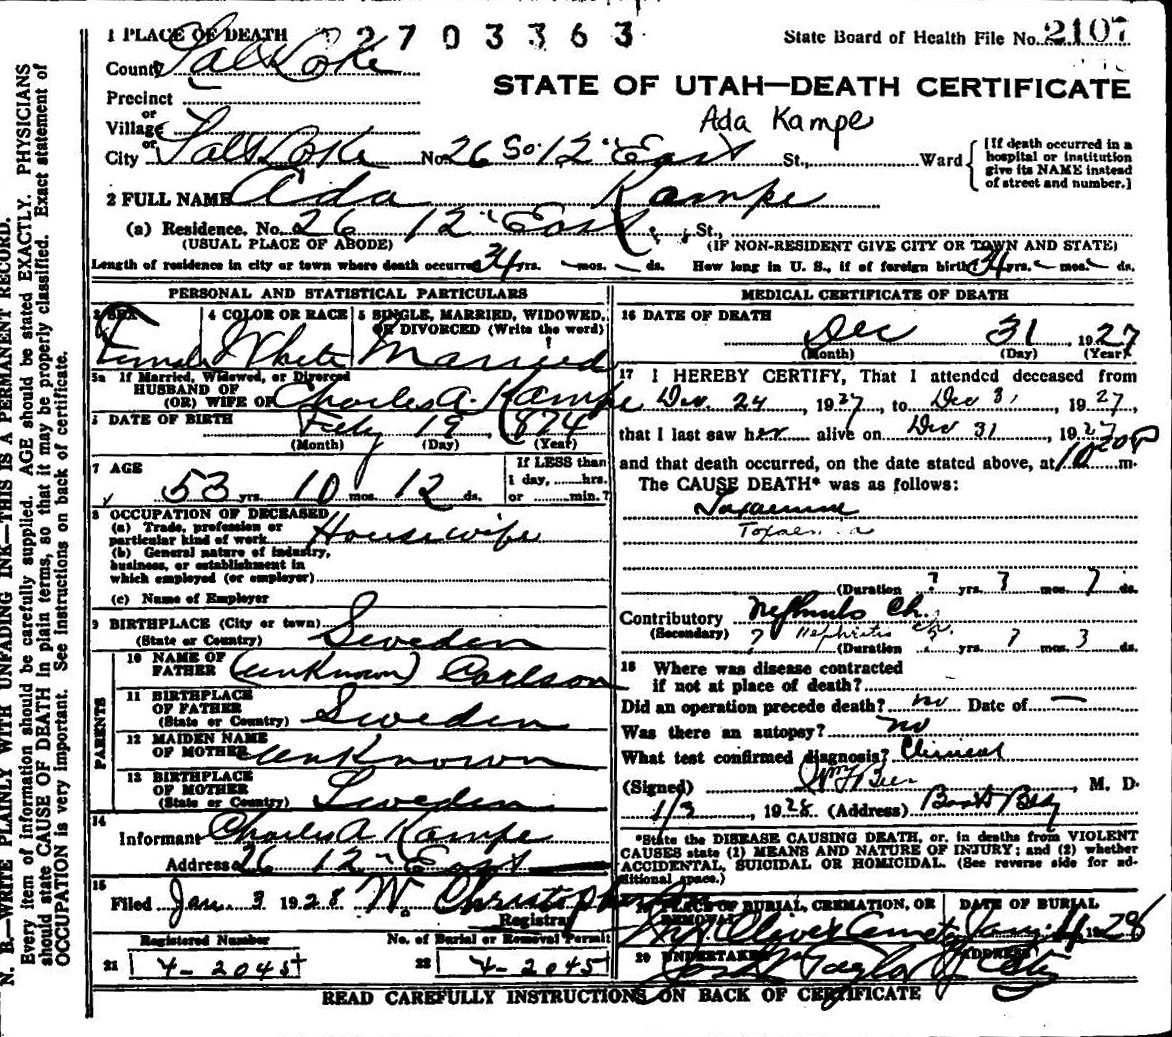 1 PLACE OF DEATH 2703363 State Board of Health File No. 2107
County Salt Lake
STATE OF UTAH—DEATH CERTIFICATE
Precinct
or
Village
Ada Kampe
or
City Salt Lake No. 26 So. 12" East St., Ward [If death occurred in a hospital or institution give its NAME instead of street and number.]
2 FULL NAME Ada Kampe
(a) Residence. No. 26 12" East St.,
(USUAL PLACE OF ABODE) (IF NON-RESIDENT GIVE CITY OR TOWN AND STATE)
Length of residence in city or town where death occurred 34 yrs. — mos. — ds. How long in U. S., if of foreign birth? 34 yrs. — mos. — ds.
PERSONAL AND STATISTICAL PARTICULARS
3 SEX 4 COLOR OR RACE 5 SINGLE, MARRIED, WIDOWED,
OR DIVORCED (Write the word)
Female White Married
5a If Married, Widowed, or Divorced
HUSBAND OF
(OR) WIFE OF Charles A. Kampe
6 DATE OF BIRTH Feby 19 1874
(Month) (Day) (Year)
7 AGE If LESS than
1 day, hrs.
53 yrs. 10 mos. 12 ds. or min.?
8 OCCUPATION OF DECEASED
(a) Trade, profession or
particular kind of work Housewife
(b) General nature of industry,
business, or establishment in
which employed (or employer)
(c) Name of Employer
9 BIRTHPLACE (City or town)
(State or Country) Sweden
PARENTS
10 NAME OF
FATHER (unknown) Carlson
11 BIRTHPLACE
OF FATHER
(State or Country) Sweden
12 MAIDEN NAME
OF MOTHER unknown
13 BIRTHPLACE
OF MOTHER
(State or Country) Sweden
14
Informant Charles A Kampe
Address 26 12" East
15
Filed Jan. 3 1928 W. Christopherson
Registrar
Registered Number No. of Burial or Removal Permit
21 Y-2045 22 Y-2045
MEDICAL CERTIFICATE OF DEATH
16 DATE OF DEATH
Dec 31 1927
(Month) (Day) (Year)
17 I HEREBY CERTIFY, That I attended deceased from
Dec. 24, 1927, to Dec 31, 1927,
that I last saw her alive on Dec 31, 1927
and that death occurred, on the date stated above, at m.
The CAUSE DEATH* was as follows:
Toxaemia
Toxaemia
(Duration ? yrs. ? mos. 7 ds.
Contributory Nephritis Ch.
(Secondary) ? Nephritis Ch.
(Duration yrs. ? mos. 3 ds.
18 Where was disease contracted
if not at place of death?
Did an operation precede death? no Date of —
Was there an autopsy? no
What test confirmed diagnosis? Clinical
(Signed) M. D.
1/3, 1928 (Address)
*State the DISEASE CAUSING DEATH, or, in deaths from VIOLENT
CAUSES state (1) MEANS AND NATURE OF INJURY; and (2) whether
ACCIDENTAL, SUICIDAL OR HOMICIDAL. (See reverse side for ad-
ditional space.)
19 PLACE OF BURIAL, CREMATION, OR REMOVAL DATE OF BURIAL
Mt. Olivet Cemetery Jan. 4 1928
20 UNDERTAKER ADDRESS
Taylor City
READ CAREFULLY INSTRUCTIONS ON BACK OF CERTIFICATE
N. B.—WRITE PLAINLY WITH UNFADING INK—THIS IS A PERMANENT RECORD.
Every item of information should be carefully supplied. AGE should be stated EXACTLY. PHYSICIANS
should state CAUSE OF DEATH in plain terms, so that it may be properly classified. Exact statement of
OCCUPATION is very important. See instructions on back of certificate.